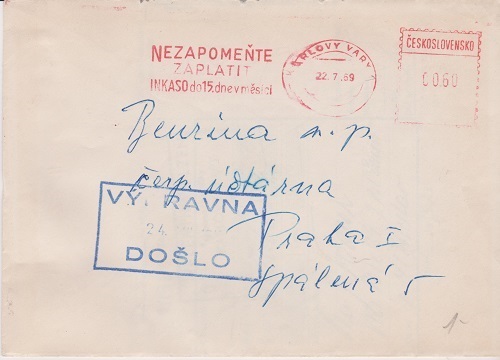 NEZAPOMEŇTE
ZAPLATIT
INKASO do 15. dne v měsíci
KARLOVY VARY
22.7.69
ČESKOSLOVENSKO
0060
Benzina n. p.
čerp.
VÝ RAVNA
24
DOŠLO
Praha I
Spálená 5
1-